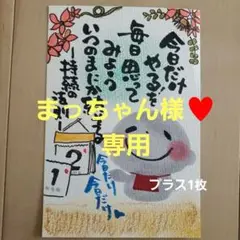 今日だけ
毎日思って
みよう
いつのまにか
る
ー持続の法則ー
まっちゃん様♥
専用
プラス1枚
2
1
今日だけ
今日だけ